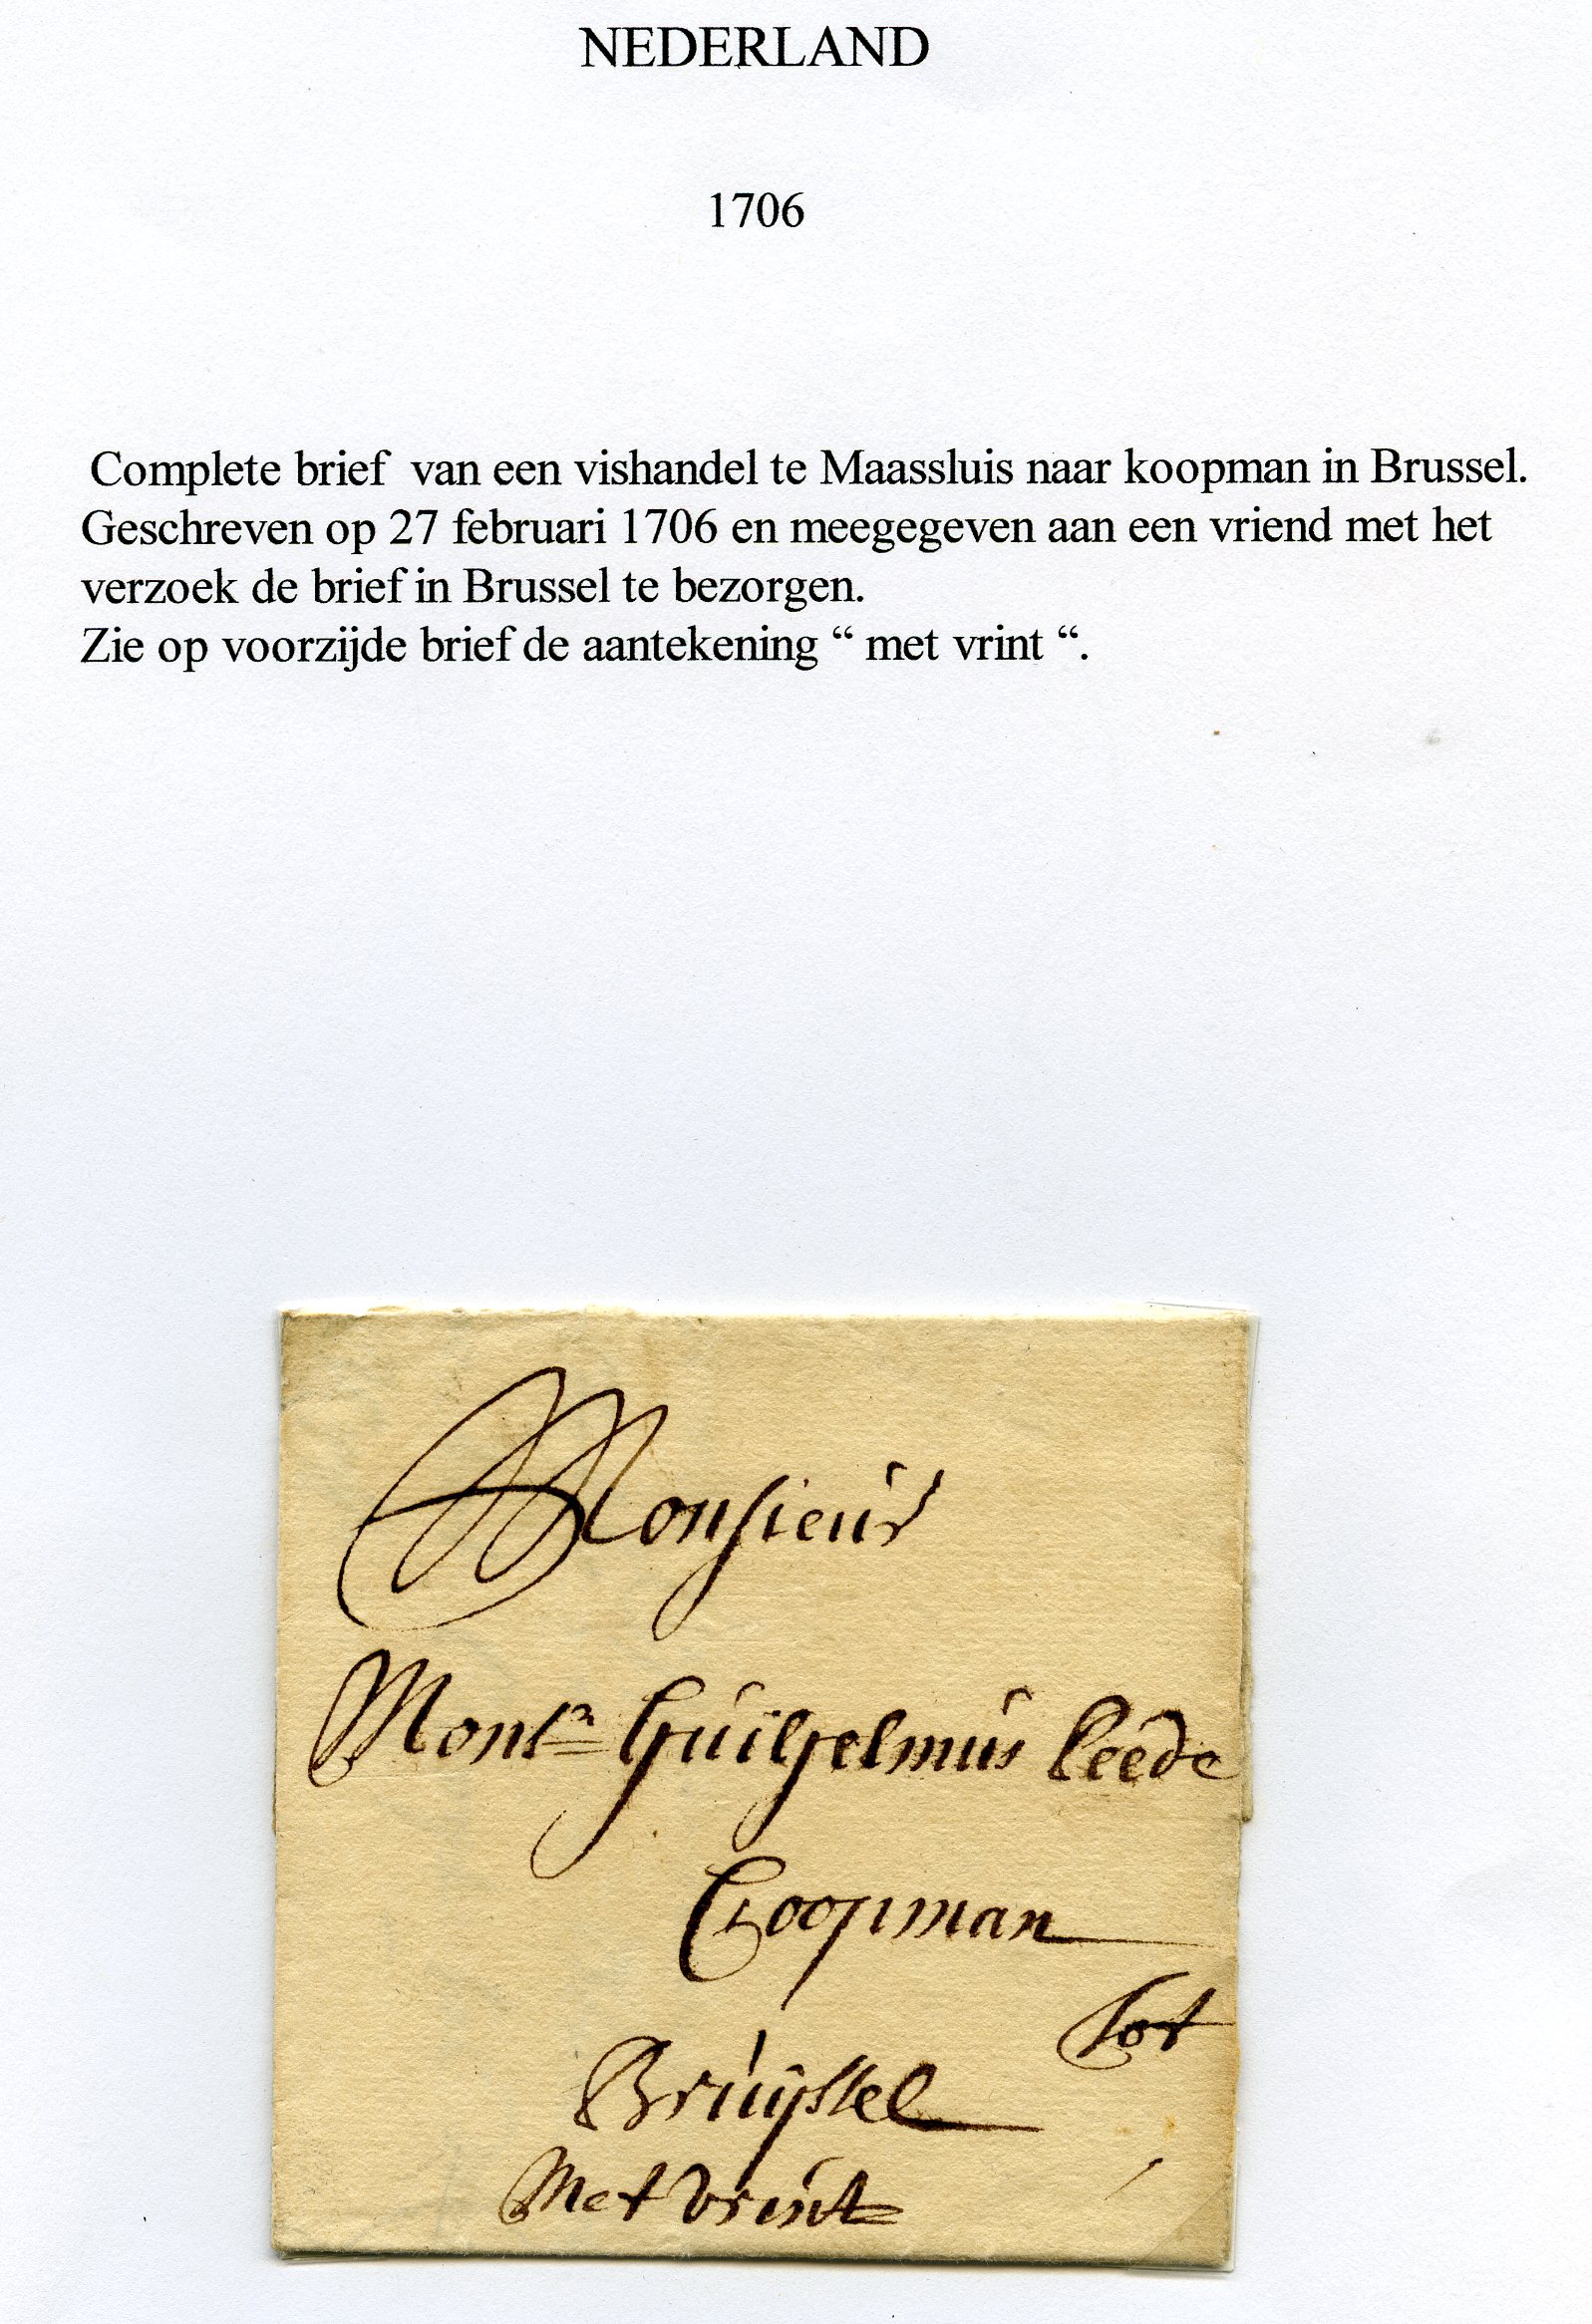 NEDERLAND
1706
Complete brief van een vishandel te Maassluis naar koopman in Brussel.
Geschreven op 27 februari 1706 en meegegeven aan een vriend met het
verzoek de brief in Brussel te bezorgen.
Zie op voorzijde brief de aantekening “ met vrint “.
Monsieur
Monsr Guilhelmus Leede
Coopman
Tot
Bruyssel
Met Vrint